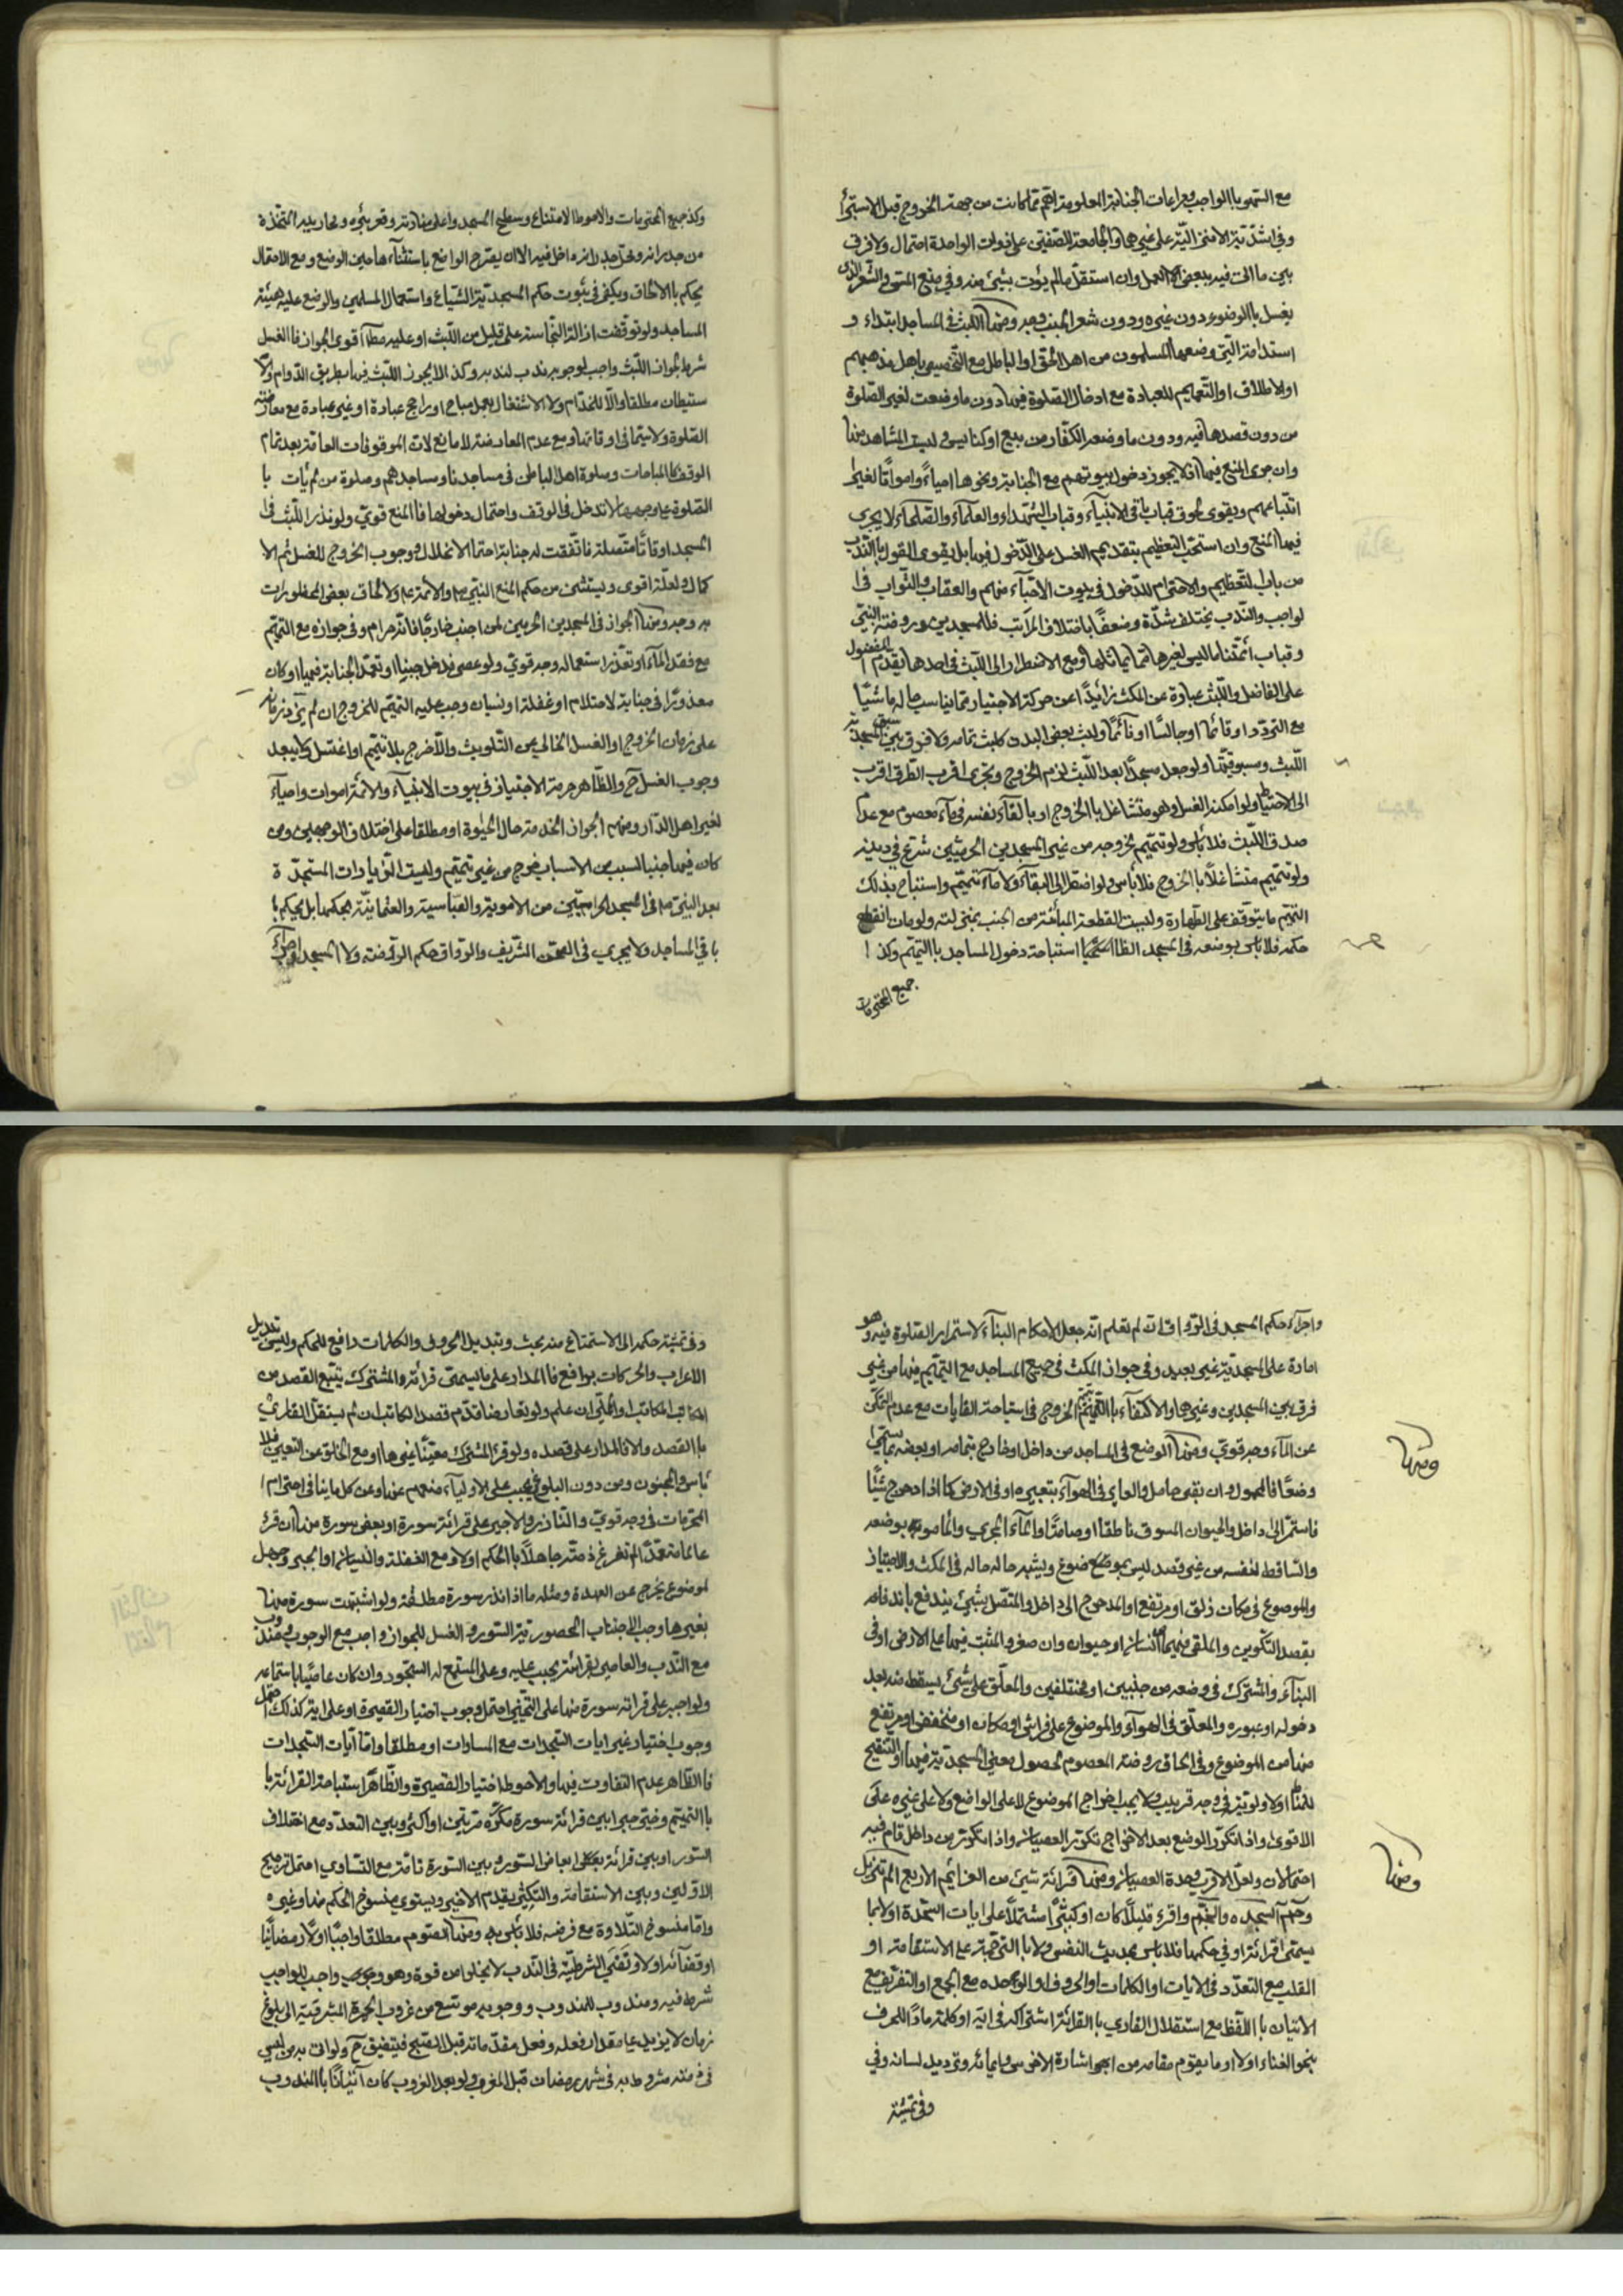 مع السهو بالواجب ومراعات الجنابة المعلومة اقتحم مما كانت من جهة الخروج قبل الاستبراء
وفي اشدية الامني النية على غيرها والجامعة للصفتين على ذوات الواحدة احتمال ولا فرق
بين ما اتى فيه ببعض العمل وان استقل ما لم يؤت بشيء منه وفي منع المني والشعر الذي
يغسل بالوضوء دون غيره ودون شعر الجنب وجه ومنها اللبث في المساجد ابتداء و
استدامة التي وضعها المسلمون من اهل الحق او الباطل مع التخصيص باهل مذهبهم
او الاطلاق او التعميم للعبادة مع ادخال الصلوة فيها دون ما وضعت لغير الصلوة
من دون قصدها فيه ودون ما وضعه الكفار من بيع او كنايس وليست المشاهد منها
وان جرى المنع فيها فلا يجوز دخول بيوتهم مع الجنابة ونحوها احياء وامواتا لغير
اتباعهم ويقوى لحوق قباب باقي الانبياء وقباب الشهداء والعلماء والصلحاء لا يجري
فيها المنع وان استحب التعظيم بتقديم الغسل على الدخول فيها بل يقوى القول بالندب
من باب التعظيم والاحترام للدخول في بيوت الاحياء منهم والعقاب والثواب في ا
لواجب والندب يختلف شدة وضعفا باختلاف المراتب فللمسجدين وروضة النبي
وقباب ائمتنا ما ليس لغيرها مما يماثلها ومع الاضطرار الى اللبث في احدها يقدم المفضول
على الفاضل واللبث عبارة عن المكث زائدا عن حركة الاجتياز مما يناسب حاله ماشيا
مع التردد او قائما او جالسا او نائما ولبث بعض البدن كلبث تمامه ولا فرق بين سبق المسجدية
اللبث ومسبوقيتها ولو جعل مسجدا بعد اللبث لزم الخروج وتحرى اقرب الطرق اقرب
الى الاحتياط ولو امكنه الغسل وهو متشاغل بالخروج او بالقاء نفسه في ماء معصوم مع عدم
صدق اللبث فلا بأس ولو تيمم لخروجه من غير المسجدين الحرميين شرع في دينه
ولو تيمم متشاغلا بالخروج فلا بأس ولو اضطر الى البقاء ولا ماء تيمم واستباح بذلك
التيمم ما يتوقف على الطهارة وليست القطعة المبانة من الجنب بمنزلته ولو مات انقطع
حكمه فلا بأس بوضعه في المسجد استباحة دخول المساجد بالتيمم وكذا
جميع المحترمات
وكذا جميع المحترمات والاحوط الامتناع وسطح المسجد واعلى منارته وقعر بئره ومحاريبه المتخذة
من جدرانه ومحل جدرانه داخل فيه الا ان يصرح الواضع باستثناءها حين الوضع ومع الاحتمال
يحكم بالالحاق ويكفي في ثبوت حكم المسجدية الشياع واستعمال المسلمين والوضع عليه هيئة
المساجد ولو توقفت ازالة النجاسة على قليل من اللبث او عليه مطلقا قوي الجواز فالغسل
شرط لجواز اللبث واجب لوجوبه مندوب لندبه وكذا لا يجوز اللبث فيها بطريق الدوام ولا
ستيطان مطلقا والا للخدام ولا الاشتغال بعمل مباح او راجح عبادة او غير عبادة مع معارضته
الصلوة ولا سيما في اوقاتها ومع عدم المعارضة لا مانع لان الموقوفات العامة بعد تمام
الوقف كالمباحات وصلوة اهل الباطن في مساجدنا ومساجدهم وصلوة من لم يأت با
الصلوة على وجهها لا تدخل في الوقف واحتمال دخولها فالمنع قوي ولو نذر اللبث في ا
لمسجد اوقاتا متصلة فاتفقت له جنابة احتمل الانحلال ووجوب الخروج للغسل ثم الا
كمال ولعله اقوى ويستثنى من حكم المنع النبي ص والائمة ع ولالحاق بعض المحظورات
به وجه ومنها الجواز في المسجدين الحرمين لمن اجنب خارجا فانه حرام وفي جوازه مع التيمم
مع فقد الماء او تعذر استعماله وجه قوي ولو عصى فدخل جنبا او تعمد الجنابة فيهما او كان
معذورا في جنابة لاحتلام او غفلة او نسيان وجب عليه التيمم للخروج ان لم يزد زمانه
على زمان الخروج او الغسل الخالي من التلويث والا خرج بلا تيمم او اغتسل ولا يبعد
وجوب الغسل ح والظاهر حرمة الاجتياز في بيوت الانبياء والائمة اموات واحياء
لغير اهل الدار ومنهم الجواز الخدمة حال الحيوة او مطلقا على اختلاف الوجهين ومن
كان فيها جنبا لسبب من الاسباب خرج من غير تيمم وليست الزيادات المستجدة
بعد النبي ص في المسجد الحراميتين من الاموية والعباسية والعثمانية بحكمها بل بحكم
باقي المساجد ولا يجري في الصحن الشريف والرواق حكم الروضة ولا المسجد
واجراء حكم المسجد في الرواقات لم نعلم انه جعل لاحكام البناء لاستمرار الصلوة فيه وهو
امارة على المسجدية غير بعيد وفي جواز المكث في جميع المساجد مع التيمم فيها من غير
فرق بين المسجدين وغيرها والاكتفاء بالتيمم للخروج في استباحة الغايات مع عدم التمكن
عن الماء وجه قوي ومنها الوضع في المساجد من داخل او خارج بتمامه او بعضه بما يسمى
وضعا فالمحمول وان بقي حامل والعابر في الهواء بتعبيره او في الارض كما اذا دحرج شيئا
فاستمر الى داخل والحيوان المسوق ناطقا او صامتا والماء المجري والمأمور بوضعه
والساقط لنفسه من غير قصد ليس بموضوع ويشبه حاله حاله في المكث والاجتياز
والموضوع في مكان زلق او مرتفع او المدحرج الى داخل والمتصل بشيء يندفع باندفاعه
بقصد التكوين والملقى فيهما انسان او حيوان وان صغر والمثبت فيها على الارض او في
البناء والمشترك في وضعه من جنبين او مختلفين والمعلق على شيء يسقط منه بعد
دخوله او عبوره والمعلق في الهواء والموضوع على فراش او مكان او منخفض او مرتفع
منها من الموضوع وفي الحاق روضة المعصوم لحصول معنى المسجدية فيها او لتنقيح
المناط اولا ولويته في وجه قريب ولا يجب اخراج الموضوع لا على الواضع ولا على غيره على
الاقوى واذا تكرر الوضع بعد الاخراج تكرر العصيان واذا تكرر من داخل قام فيه
احتمالان ولعل الاقرب وحدة العصيان ومنها قرائة شيء من العزائم الاربع الم تنزيل
وحم السجده والنجم واقرء قليلا كان او كثيرا مشتملا على ايات السجدة اولا بما
يسمى قرائة او في حكمها فلا بأس بحديث النفس ولا بالترجمة على الاستقامة او
القلب مع التعدد في الايات او الكلمات او الحروف او الوحده مع الجمع او التفريق مع
الاتيان باللفظ مع استقلال القاري بالقرائة او اشتراكه في اية او كلمة مادا للحرف
بنحو الغناء اولا او ما يقوم مقامه من ابهى اشارة الاخرس وايمائه وترديد لسانه وفي
وفي تمشية
ومنها
ومنها
وفي تمشية حكمه الى الاستمتاع منه بحث وتبديل الحروف والكلمات دافع للحكم وليس تبديل
الاعراب والحركات بدافع فالمدار على ما يسمى قرائة والمشترك يتبع القصد من
الكاتب المكاتب او المملي ان علم ولو تعارضا قدم قصد الكاتب ان لم يستقل القاري
بالقصد والا فالمدار على قصده ولو قرء المشترك معينا غيرها او مع الخلو عن التعيين فلا
بأس والمجنون ومن دون البلوغ يجب على الاولياء منعهم عنها وعن كل ما ينافي احترام ا
لمحرمات في وجه قوي والناذر والاجير على قرائة سورة او بعض سورة منها ان قرء
عالما متعمدا لم تفرغ ذمته جاهلا بالحكم اولا ومع الغفلة والنسيان او الجبر وجهل
لموضوع يخرج عن العهدة ومثله ما اذا نذر سورة مطلقة ولو اشتبهت سورة منها
بغيرها وجب الاجتناب المحصورية السور والغسل للجواز واجب مع الوجوب ومندوب
مع الندب والعاصي بقرائته يجب عليه وعلى المستمع له السجود وان كان عاصيا باستماعه
ولو اجبر على قرائة سورة منها على التخيير احتمل وجوب اختيار القصيرة او على اية كذلك احتمل
وجوب اختيار غير ايات السجدات مع المساوات او مطلقا واما آيات السجدات
فالظاهر عدم التفاوت فيها والاحوط اختيار القصيرة والظاهر استباحة القرائة با
بالتيمم وخير جبرا بين قرائة سورة مكررة مرتين او اكثر وبين التعدد مع اختلاف
السور او بين قرائة ابعاض السور وبين السورة تامة مع التساوي احتمل ترجيح
الاولين وبين الاستقامة والتنكيس يقدم الاخير ويستوي منسوخ الحكم منها وغيره
واما منسوخ التلاوة مع فرضه فلا بأس به ومنها الصوم مطلقا واجبا اولا رمضانيا
او قضائه اولا وتمشي الشرطية في الندب لا يخلو من قوة وهو وجوب واجب للواجب
شرط فيه ومندوب للمندوب ووجوبه موسع من غروب الحمرة المشرقية الى بلوغ
زمان لا يزيد على مقدار فعله وفعل مقدماته قبل الصبح فيتضيق ح ولو اتى به من ليس
في ذمته مشروط به في شهر رمضان قبل المغرب ولو بعد الغروب كان آتيانا بالمندوب